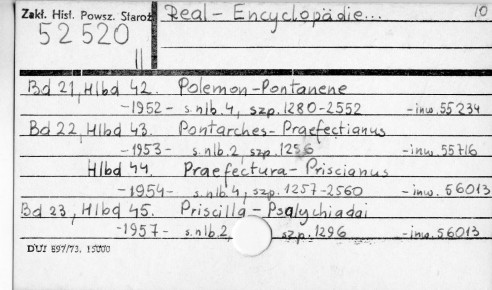 Zakł. Hist. Powsz. Staroż
Real-Encyclopädie...
10
52520
II
Bd 21, Hlbd 42. Polemon-Pontanene
-1952- s.nlb. 4, szp. 1280-2552 -inw. 55234
Bd 22, Hlbd 43. Pontarches-Praefectianus
-1953- s.nlb. 2, szp. 1256 -inw. 55716
Hlbd 44. Praefectura-Priscianus
-1954- s.nlb 4, szp. 1257-2560 -inw. 56013
Bd 23, Hlbd 45. Priscilla-Psalychiadai
-1957- s.nlb. 2, szp. 1296 -inw. 56013
DUI 897/73. 15000